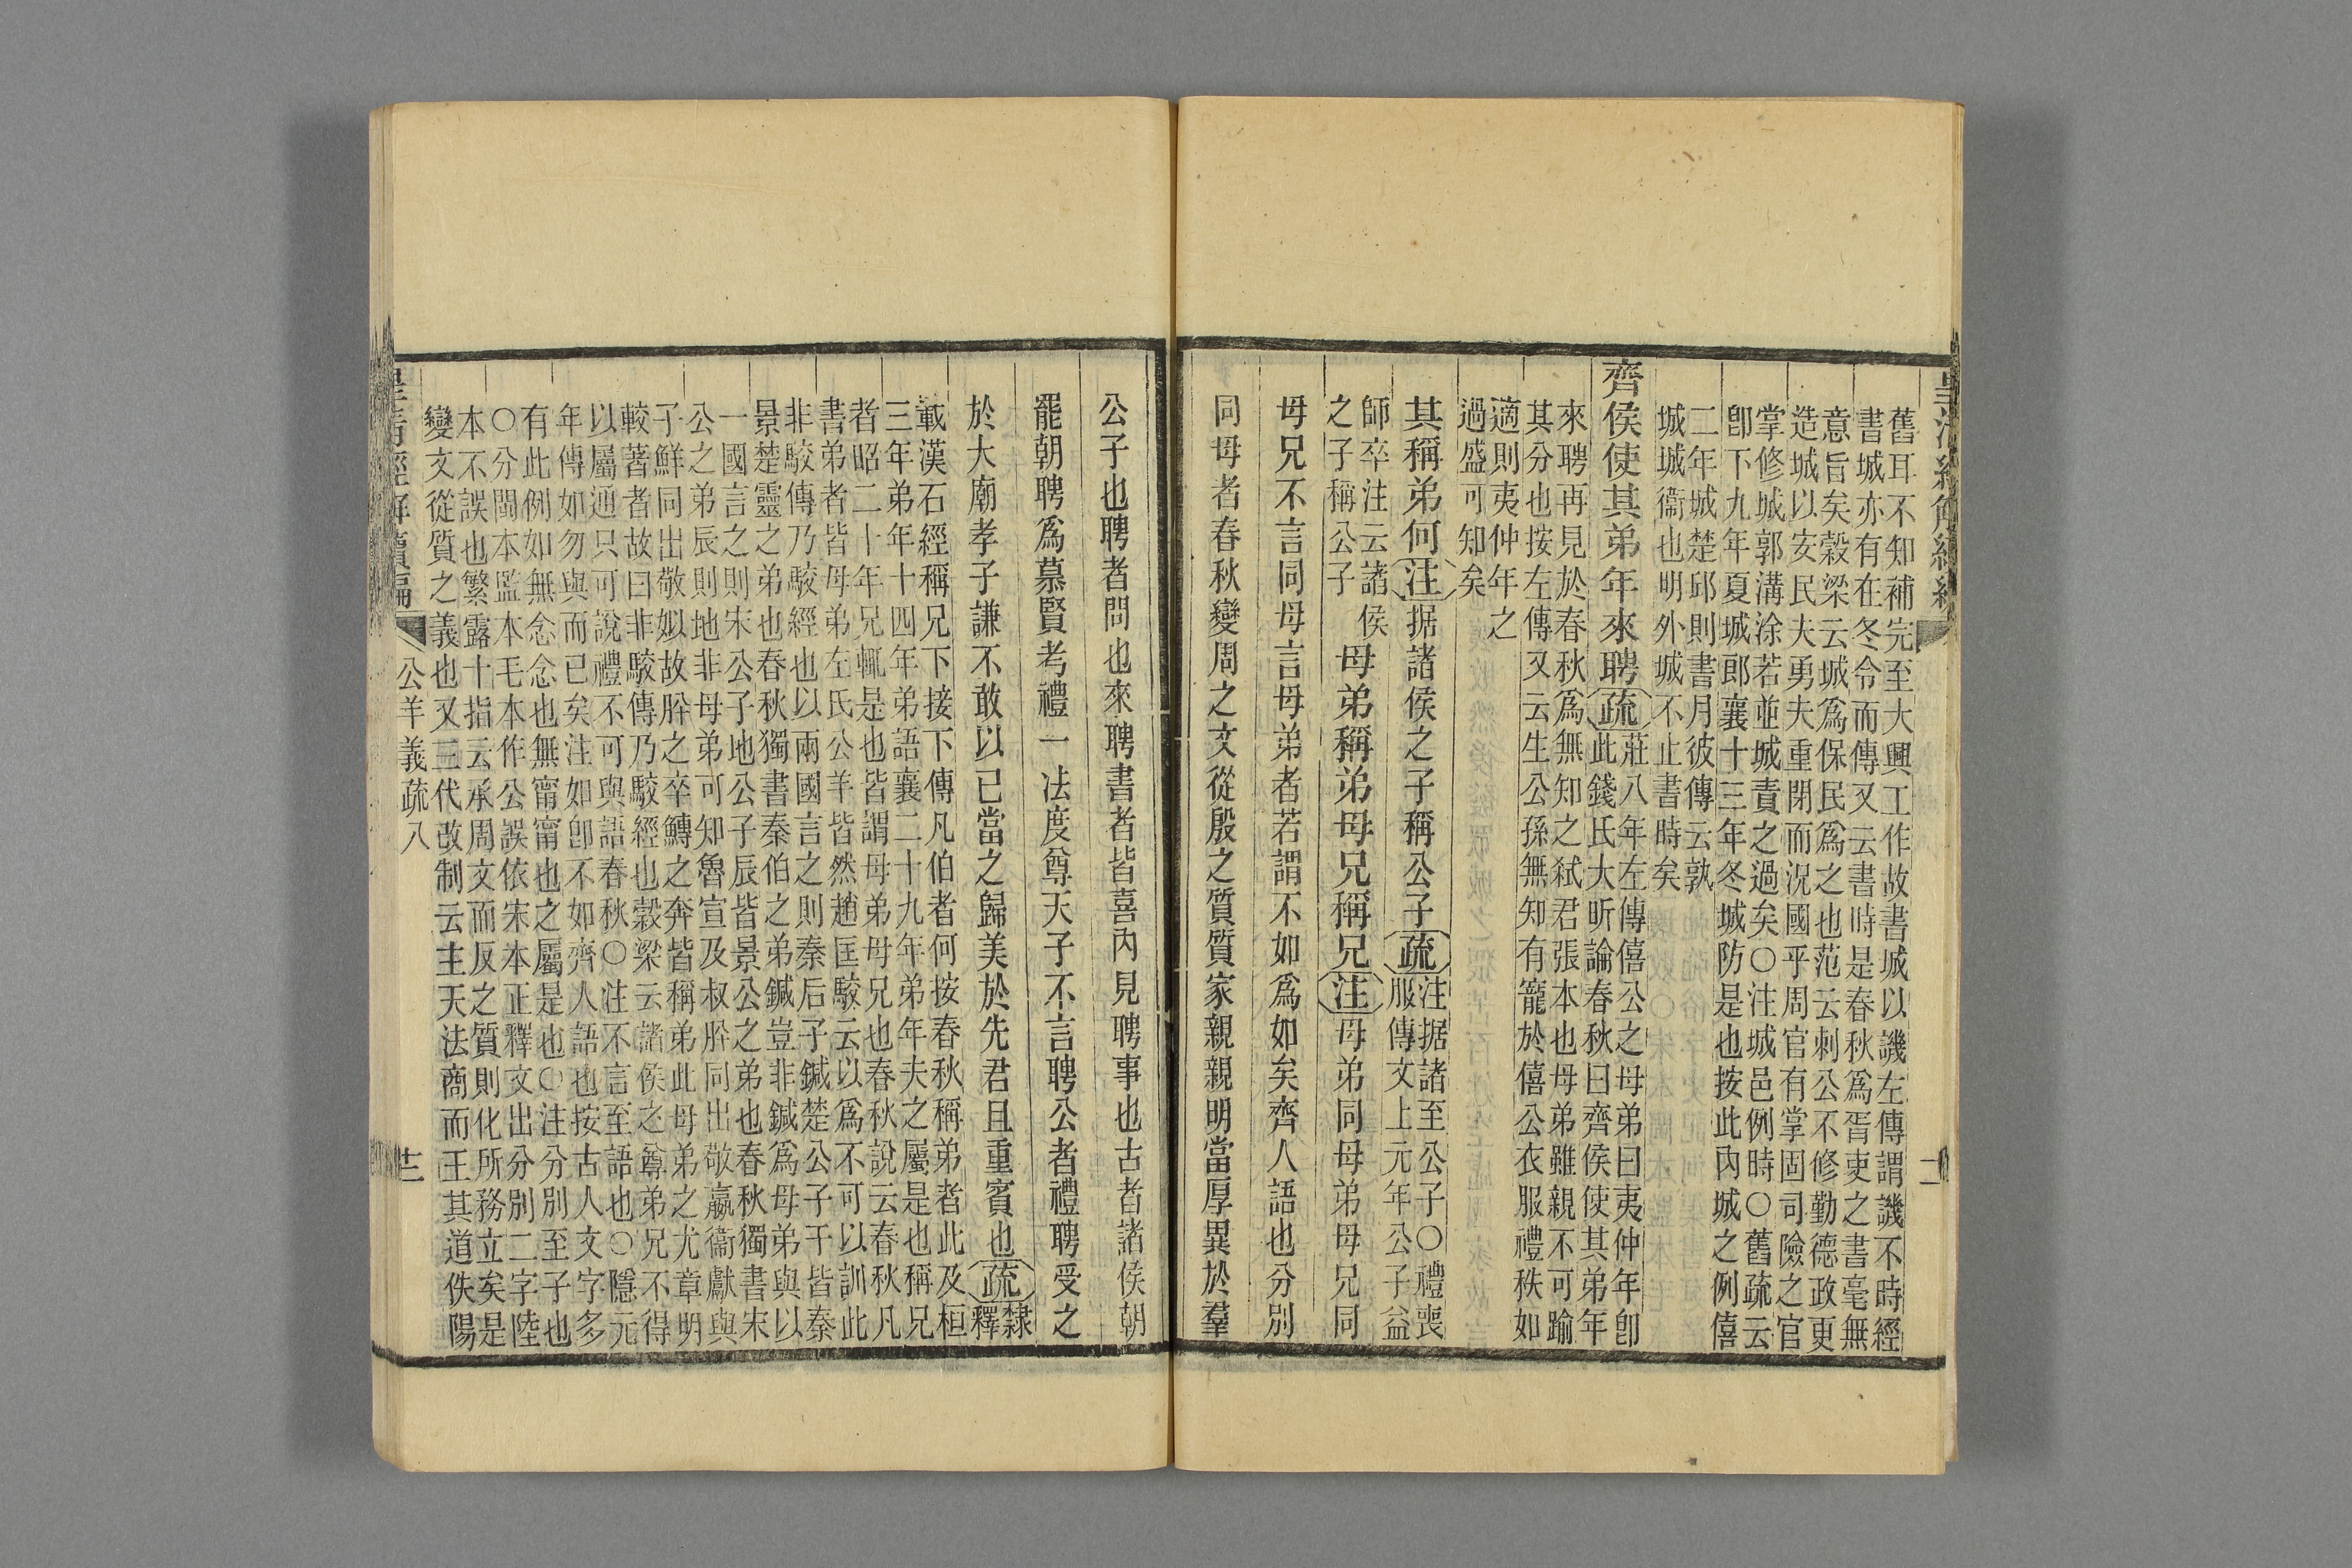 舊耳不知補完至大興工作故書城以譏左傳謂譏不時經
書城亦有在冬令而傳又云書時是春秋爲胥吏之書毫無
意旨矣穀梁云城爲保民爲之也范云刺公不修勤德政更
造城以安民夫勇夫重閉而況國乎周官有掌固司險之官
掌修城郭溝涂若並城責之過矣○注城邑例時○舊疏云
卽下九年夏城郎襄十三年冬城防是也按此內城之例僖
二年城楚邱則書月彼傳云孰
城城衞也明外城不止書時矣
齊侯使其弟年來聘疏莊八年左傳僖公之母弟曰夷仲年卽
此錢氏大昕論春秋曰齊侯使其弟年
來聘再見於春秋爲無知之弒君張本也母弟雖親不可踰
其分也按左傳又云生公孫無知有寵於僖公衣服禮秩如
適則夷仲年之
過盛可知矣
其稱弟何注据諸侯之子稱公子疏注据諸至公子○禮喪
服傳文上元年公子益
師卒注云諸侯
之子稱公子
母弟稱弟母兄稱兄注母弟同母弟母兄同
母兄不言同母言母弟者若謂不如爲如矣齊人語也分別
同母者春秋變周之文從殷之質質家親親明當厚異於羣
公子也聘者問也來聘書者皆喜內見聘事也古者諸侯朝
罷朝聘爲慕賢考禮一法度尊天子不言聘公者禮聘受之
於大廟孝子謙不敢以已當之歸美於先君且重賓也疏隸
釋
載漢石經稱兄下接下傳凡伯者何按春秋稱弟者此及桓
三年弟年十四年弟語襄二十九年弟年夫之屬是也稱兄
者昭二十年兄輒是也皆謂母弟母兄也春秋說云春秋凡
書弟者皆母弟左氏公羊皆然趙匡駮云以爲不可以訓此
非駮傳乃駮經也以兩國言之則秦后子鍼楚公子干皆秦
景楚靈之弟也春秋獨書秦伯之弟鍼豈非鍼爲母弟與以
一國言之則宋公子地公子辰皆景公之弟也春秋獨書宋
公之弟辰則地非母弟可知魯宣及叔肸同出敬嬴衞獻與
子鮮同出敬姒故肸之卒鱄之奔皆稱弟此母弟之尤章明
較著者故曰非駮傳乃駮經也穀梁云諸侯之尊弟兄不得
以屬通只可說禮不可與語春秋○注不言至語也○隱元
年傳如勿與而已矣注如卽不如齊人語也按古人文字多
有此例如無念念也無甯甯也之屬是也○注分別至子也
○分閩本監本毛本作公誤依宋本正釋文出分別二字陸
本不誤也繁露十指云承周文而反之質則化所務立矣是
變文從質之義也又三代改制云主天法商而王其道佚陽
公羊義疏八